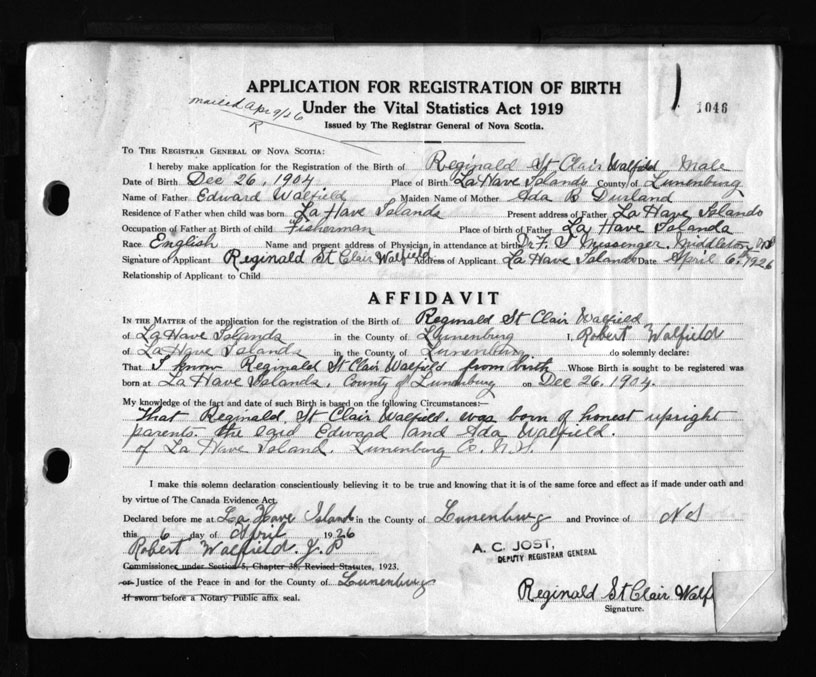 APPLICATION FOR REGISTRATION OF BIRTH
Under the Vital Statistics Act 1919
Issued by The Registrar General of Nova Scotia.
mailed Apr 9/26
R
1046
TO THE REGISTRAR GENERAL OF NOVA SCOTIA:
I hereby make application for the Registration of the Birth of Reginald St Clair Walfield Male
Date of Birth Dec 26, 1904 Place of Birth La Have Islands County of Lunenburg
Name of Father Edward Walfield Maiden Name of Mother Ada B Durland
Residence of Father when child was born La Have Islands Present address of Father La Have Islands
Occupation of Father at Birth of child Fisherman Place of birth of Father La Have Islands
Race English Name and present address of Physician, in attendance at birth Dr F. S Messenger. Middleton NS
Signature of Applicant Reginald St Clair Walfield Address of Applicant La Have Islands Date April 6th 1926
Relationship of Applicant to Child
AFFIDAVIT
IN THE MATTER of the application for the registration of the Birth of Reginald St Clair Walfield
of La Have Islands in the County of Lunenburg I, Robert Walfield
of La Have Islands in the County of Lunenburg do solemnly declare:
That I know Reginald St Clair Walfield from birth Whose Birth is sought to be registered was
born at La Have Islands, County of Lunenburg on Dec 26. 1904.
My knowledge of the fact and date of such Birth is based on the following Circumstances:—
That Reginald St Clair Walfield. was born of honest upright
parents. the said Edward and Ada Walfield.
of La Have Island. Lunenburg Co. N.S.
I make this solemn declaration conscientiously believing it to be true and knowing that it is of the same force and effect as if made under oath and
by virtue of The Canada Evidence Act.
Declared before me at La Have Islands in the County of Lunenburg and Province of N S
this 6 day of April 1926
Robert Walfield. J. P
A. C. JOST,
DEPUTY REGISTRAR GENERAL
Commissioner under Section 5, Chapter 38, Revised Statutes, 1923.
or Justice of the Peace in and for the County of Lunenburg
If sworn before a Notary Public affix seal.
Reginald St Clair Walf
Signature.